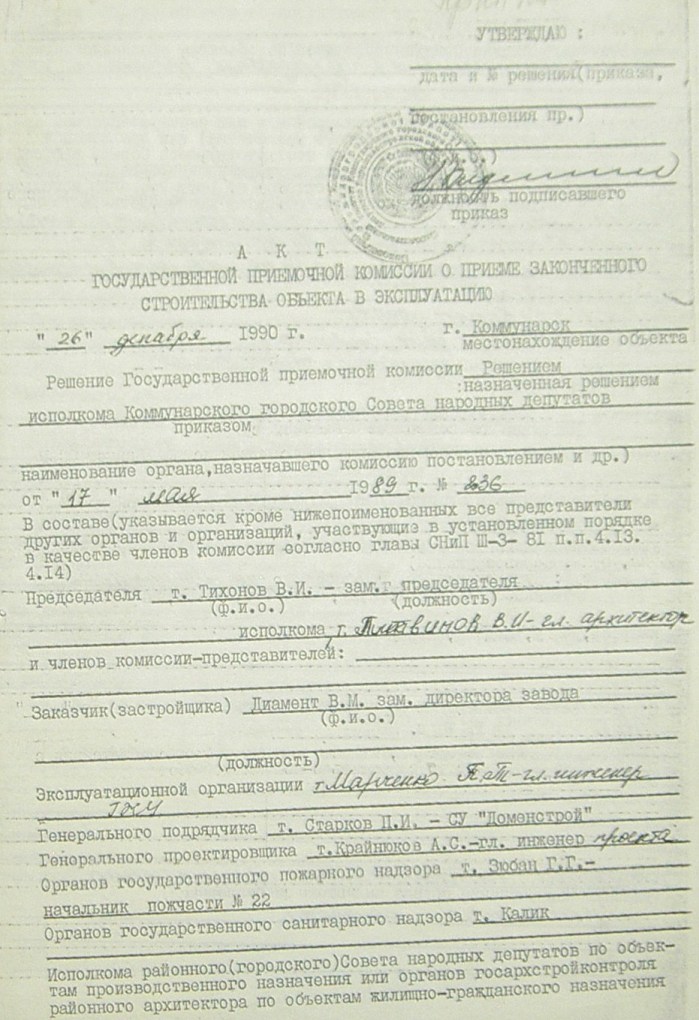 УТВЕРЖДАЮ :
дата и № решения(приказа,
постановления пр.)
(ф.и.о.)
должность подписавшего
приказ
А К Т
ГОСУДАРСТВЕННОЙ ПРИЕМОЧНОЙ КОМИССИИ О ПРИЕМЕ ЗАКОНЧЕННОГО
СТРОИТЕЛЬСТВА ОБЪЕКТА В ЭКСПЛУАТАЦИЮ
"26" декабря 1990 г. г. Коммунарск
местонахождение объекта
Решение Государственной приемочной комиссии Решением
:назначенная решением
исполкома Коммунарского городского Совета народных депутатов
приказом
наименование органа,назначавшего комиссию постановлением и др.)
от "17" мая 1989 г. № 236
В составе(указывается кроме нижепоименованных все представители
других органов и организаций, участвующиз в установленном порядке
в качестве членов комиссии согласно главы СНиП Ш-3- 81 п.п.4.13.
4.14)
Председателя т. Тихонов В.И. - зам. председателя
(ф.и.о.) (должность)
исполкома, т. Литвинов В.И- гл. архитектор
и членов комиссии-представителей:
Заказчик(застройщика) Диамент В.М. зам. директора завода
(ф.и.о.)
(должность)
Эксплуатационной организации т Марченко П.Т-гл. инженер
Генерального подрядчика т. Старков П.И. - СУ "Доменстрой"
Генерального проектировщика т.Крайнюков А.С.-гл. инженер проекта
Органов государственного пожарного надзора т. Зюбан Г.Г.-
начальник пожчасти № 22
Органов государственного санитарного надзора т. Калик
Исполкома районного(городского)Совета народных депутатов по объек-
там производственного назначения или органов госархстройконтроля
районного архитектора по объектам жилищно-гражданского назначения